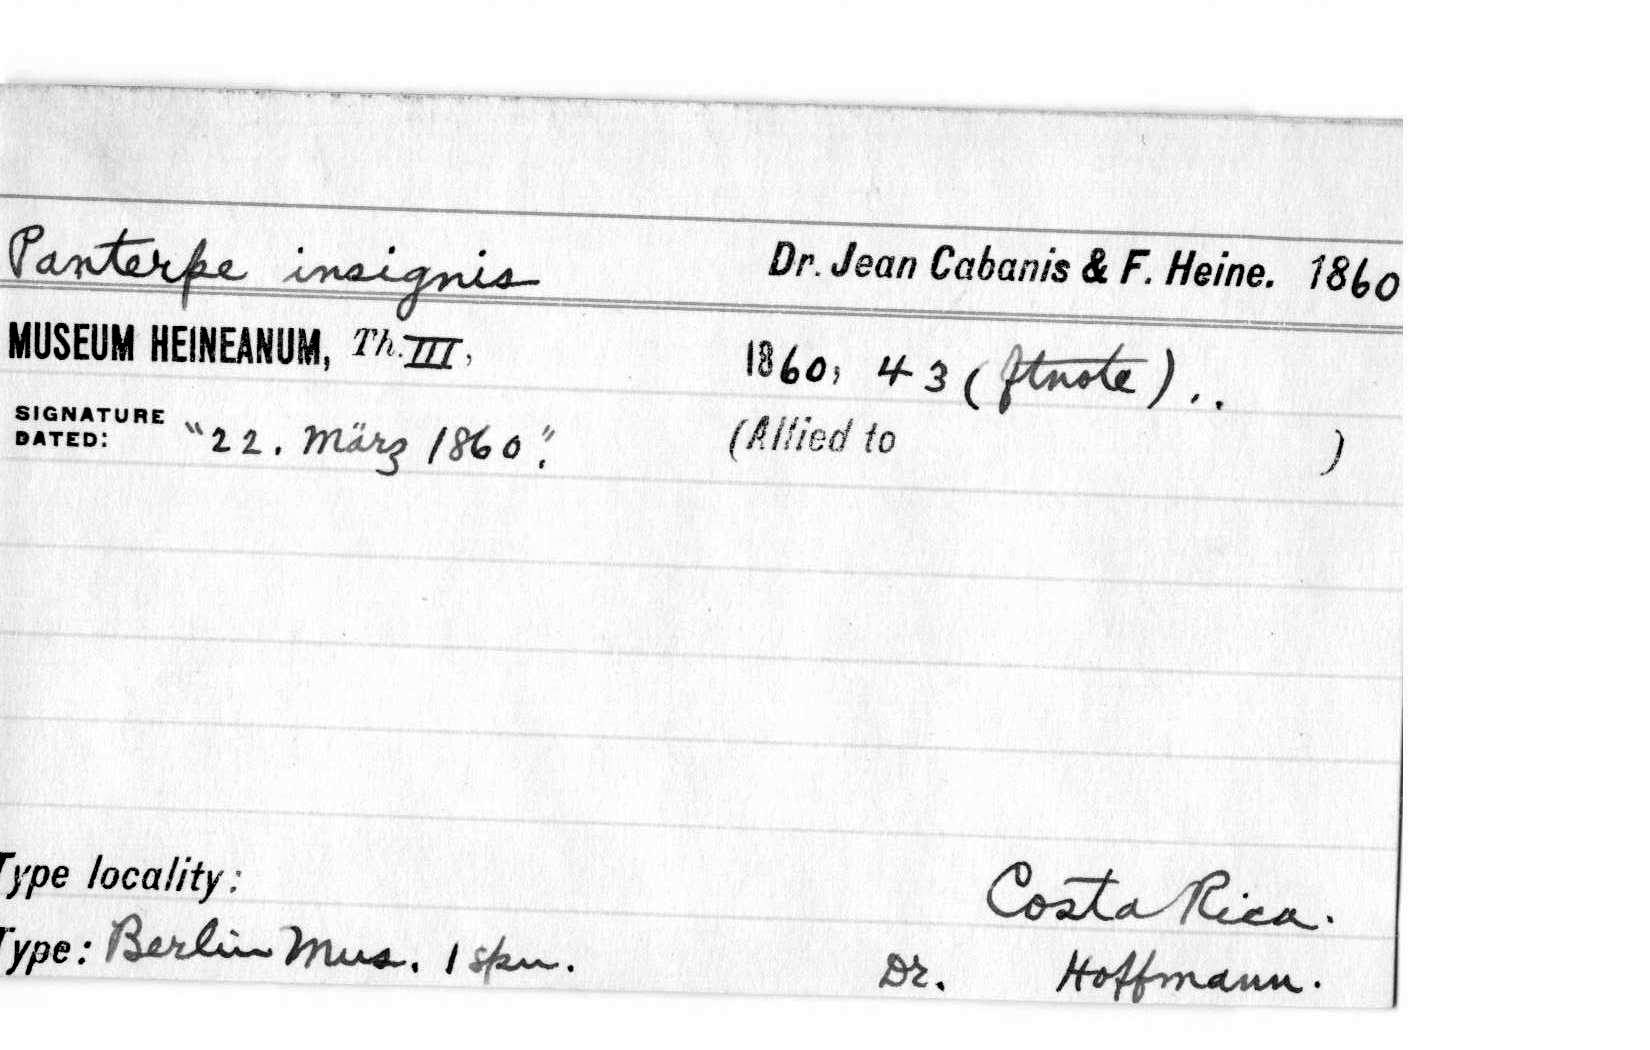 Panterpe insignis Dr. Jean Cabanis & F. Heine. 1860
MUSEUM HEINEANUM, Th. III, 1860, 43 (ftnote)..
SIGNATURE DATED: "22. März 1860". (Allied to )
Type locality: Costa Rica.
Type: Berlin Mus. 1 spn. Dr. Hoffmann.